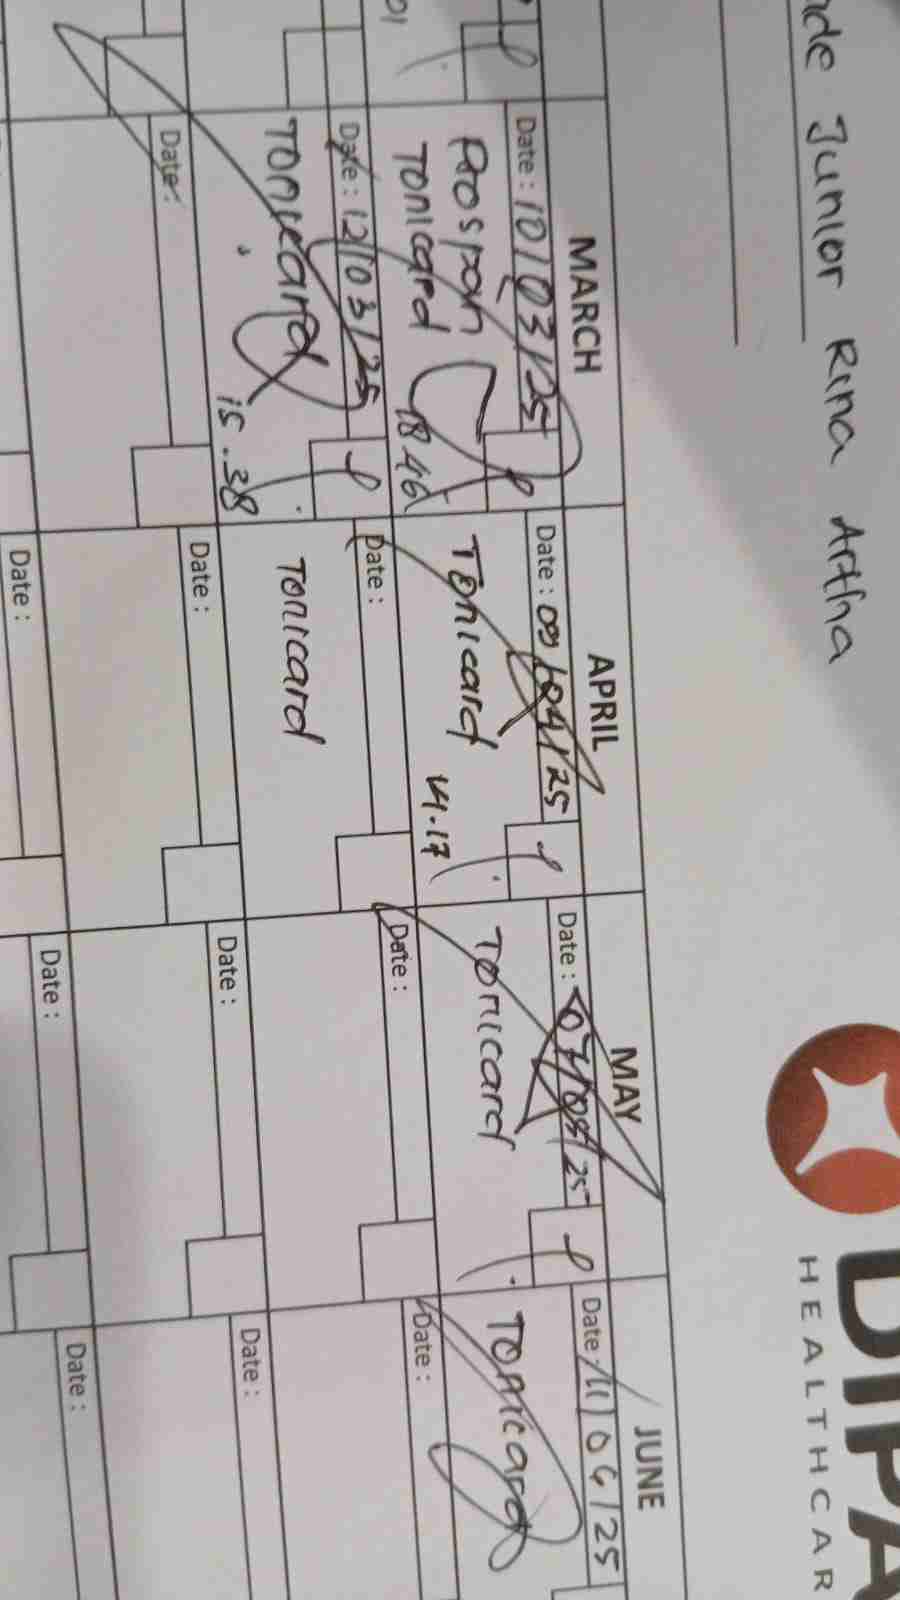 de Junior Rina Artha
DIPA
HEALTHCAR
MARCH
APRIL
MAY
JUNE
Date : 10/03/25
Prospan
Tonicard
18.46
Date : 09/04/25
Tonicard
14.17
Date : 07/05/25
Tonicard
Date : 11/06/25
Tonicard
01
Date : 12/03/25
Tonicard
15.38
Date :
Tonicard
Date :
Date :
Date :
Date :
Date :
Date :
Date :
Date :
Date :